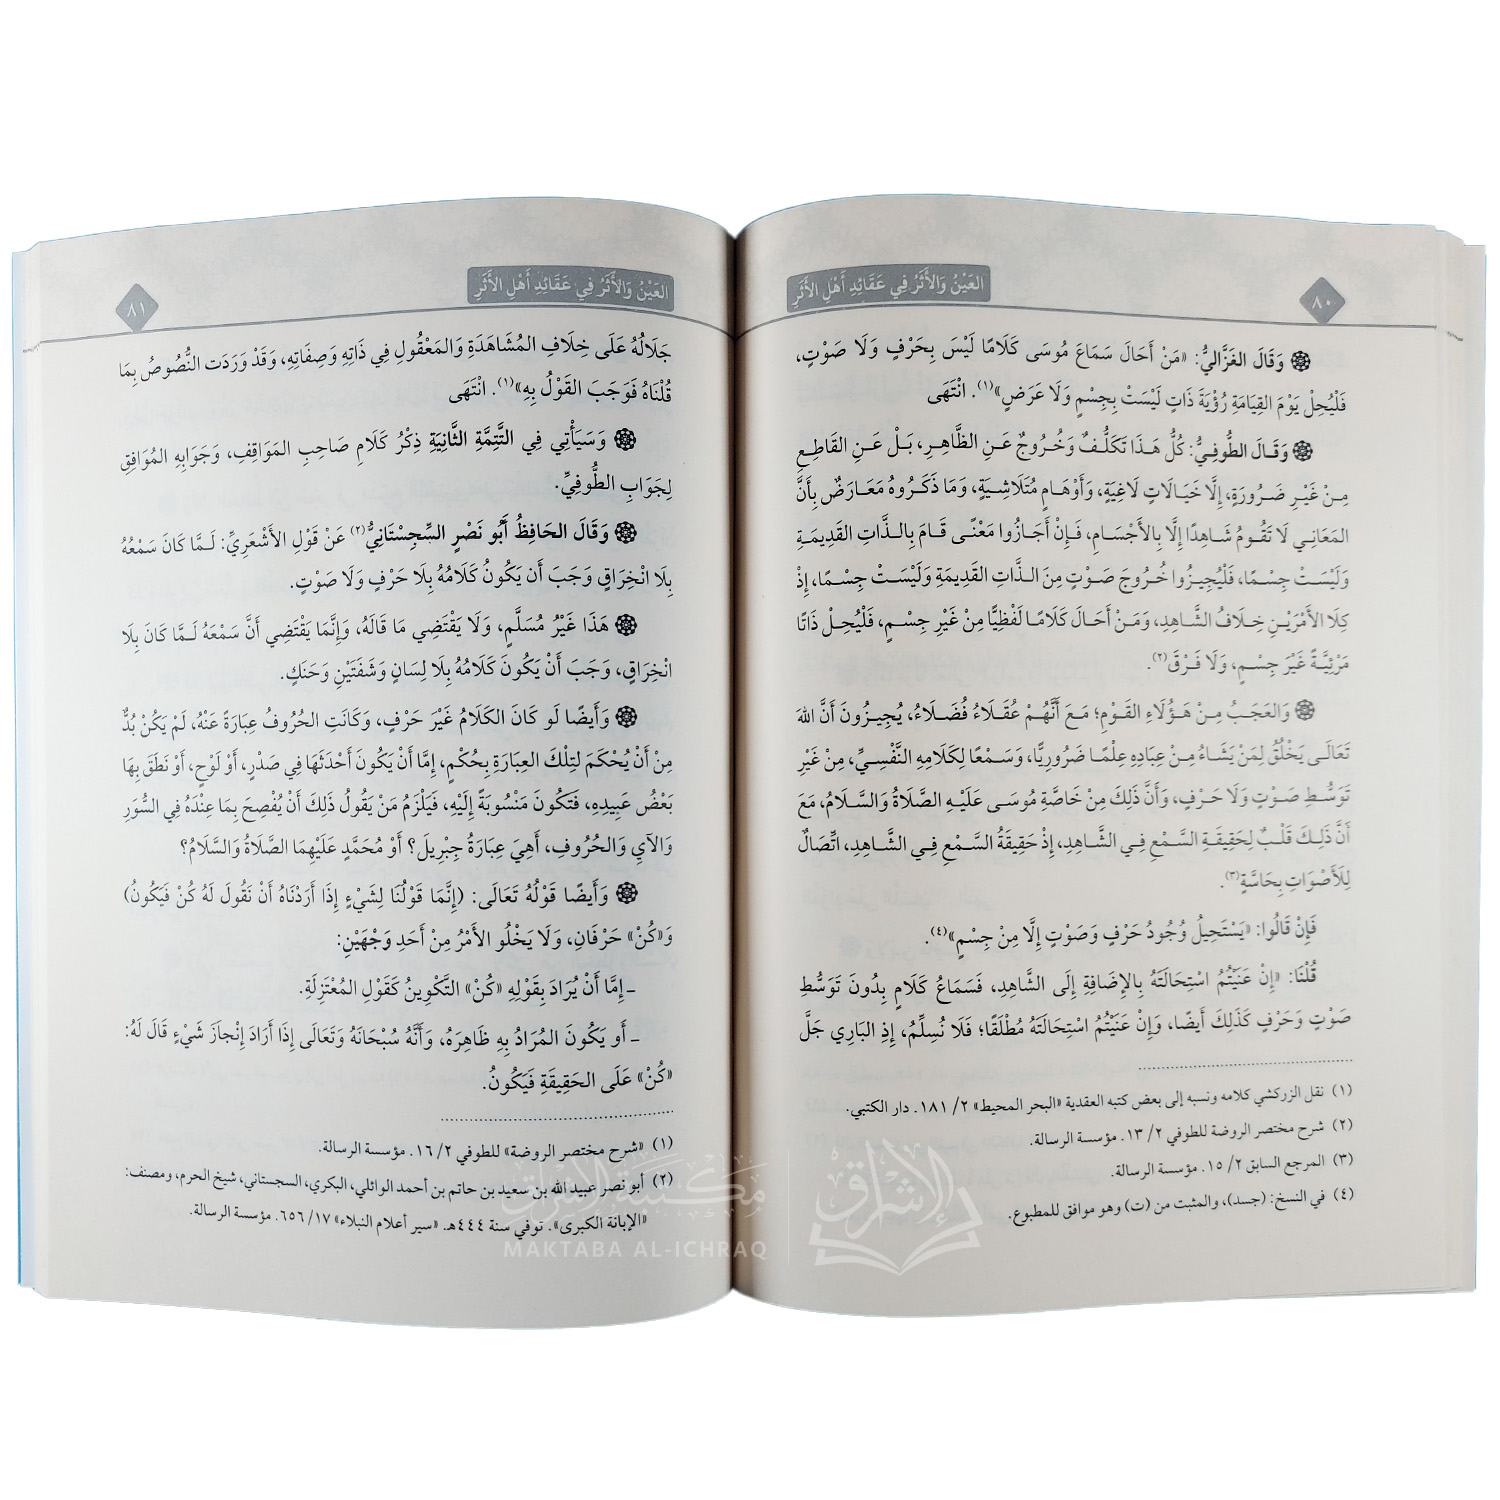 ٨٠
العَيْنُ وَالأَثَرُ فِي عَقَائِدِ أَهْلِ الأَثَرِ
وَقَالَ الغَزَّالِيُّ: «مَنْ أَحَالَ سَمَاعَ مُوسَى كَلَامًا لَيْسَ بِحَرْفٍ وَلَا صَوْتٍ،
فَلْيُحِلْ يَوْمَ القِيَامَةِ رُؤْيَةَ ذَاتٍ لَيْسَتْ بِجِسْمٍ وَلَا عَرَضٍ»(١). انْتَهَى
وَقَالَ الطُّوفِيُّ: كُلُّ هَذَا تَكَلُّفٌ وَخُرُوجٌ عَنِ الظَّاهِرِ، بَلْ عَنِ القَاطِعِ
مِنْ غَيْرِ ضَرُورَةٍ، إِلَّا خَيَالَاتٍ لَاغِيَةٍ، وَأَوْهَامٍ مُتَلَاشِيَةٍ، وَمَا ذَكَرُوهُ مَعَارَضٌ بِأَنَّ
المَعَانِي لَا تَقُومُ شَاهِدًا إِلَّا بِالأَجْسَامِ، فَإِنْ أَجَازُوا مَعْنًى قَامَ بِالذَّاتِ القَدِيمَةِ
وَلَيْسَتْ جِسْمًا، فَلْيُجِيزُوا خُرُوجَ صَوْتٍ مِنَ الذَّاتِ القَدِيمَةِ وَلَيْسَتْ جِسْمًا، إِذْ
كِلَا الأَمْرَيْنِ خِلَافُ الشَّاهِدِ، وَمَنْ أَحَالَ كَلَامًا لَفْظِيًّا مِنْ غَيْرِ جِسْمٍ، فَلْيُحِلْ ذَاتًا
مَرْئِيَّةً غَيْرَ جِسْمٍ، وَلَا فَرْقَ(٢).
وَالعَجَبُ مِنْ هَؤُلَاءِ القَوْمِ؛ مَعَ أَنَّهُمْ عُقَلَاءُ فُضَلَاءُ، يُجِيزُونَ أَنَّ اللهَ
تَعَالَى يَخْلُقُ لِمَنْ يَشَاءُ مِنْ عِبَادِهِ عِلْمًا ضَرُورِيًّا، وَسَمْعًا لِكَلَامِهِ النَّفْسِيِّ، مِنْ غَيْرِ
تَوَسُّطِ صَوْتٍ وَلَا حَرْفٍ، وَأَنَّ ذَلِكَ مِنْ خَاصَّةِ مُوسَى عَلَيْهِ الصَّلَاةُ وَالسَّلَامُ، مَعَ
أَنَّ ذَلِكَ قَلْبٌ لِحَقِيقَةِ السَّمْعِ فِي الشَّاهِدِ، إِذْ حَقِيقَةُ السَّمْعِ فِي الشَّاهِدِ، اتِّصَالٌ
لِلأَصْوَاتِ بِحَاسَّةٍ(٣).
فَإِنْ قَالُوا: «يَسْتَحِيلُ وُجُودُ حَرْفٍ وَصَوْتٍ إِلَّا مِنْ جِسْمٍ»(٤).
قُلْنَا: «إِنْ عَنَيْتُمُ اسْتِحَالَتَهُ بِالإِضَافَةِ إِلَى الشَّاهِدِ، فَسَمَاعُ كَلَامٍ بِدُونَ تَوَسُّطِ
صَوْتٍ وَحَرْفٍ كَذَلِكَ أَيضًا، وَإِنْ عَنَيْتُمُ اسْتِحَالَتَهُ مُطْلَقًا؛ فَلَا نُسِلِّمُ، إِذِ البَارِي جَلَّ
(١) نقل الزركشي كلامه ونسبه إلى بعض كتبه العقدية «البحر المحيط» ٢/ ١٨١. دار الكتبي.
(٢) شرح مختصر الروضة للطوفي ٢/ ١٣. مؤسسة الرسالة.
(٣) المرجع السابق ٢/ ١٥. مؤسسة الرسالة.
(٤) في النسخ: (جسد)، والمثبت من (ت) وهو موافق للمطبوع.
العَيْنُ وَالأَثَرُ فِي عَقَائِدِ أَهْلِ الأَثَرِ
٨١
جَلَالُهُ عَلَى خِلَافِ المُشَاهَدَةِ وَالمَعْقُولِ فِي ذَاتِهِ وَصِفَاتِهِ، وَقَدْ وَرَدَت النُّصُوصُ بِمَا
قُلْنَاهُ فَوَجَبَ القَوْلُ بِهِ»(١). انْتَهَى
وَسَيَأْتِي فِي التَّتِمَّةِ الثَّانِيَةِ ذِكْرُ كَلَامِ صَاحِبِ المَوَاقِفِ، وَجَوَابِهِ المُوَافِقِ
لِجَوَابِ الطُّوفِيِّ.
وَقَالَ الحَافِظُ أَبُو نَصْرٍ السِّجِسْتَانِيُّ(٢) عَنْ قَوْلِ الأَشْعَرِيِّ: لَمَّا كَانَ سَمْعُهُ
بِلَا انْخِرَاقٍ وَجَبَ أَن يَكُونُ كَلَامُهُ بِلَا حَرْفٍ وَلَا صَوْتٍ.
هَذَا غَيْرُ مُسَلَّمٍ، وَلَا يَقْتَضِي مَا قَالَهُ، وَإِنَّمَا يَقْتَضِي أَنَّ سَمْعَهُ لَمَّا كَانَ بِلَا
انْخِرَاقٍ، وَجَبَ أَنْ يَكُونَ كَلَامُهُ بِلَا لِسَانٍ وَشَفَتَيْنِ وَحَنَكٍ.
وَأَيضًا لَو كَانَ الكَلَامُ غَيْرَ حَرْفٍ، وَكَانَتِ الحُرُوفُ عِبَارَةً عَنْهُ، لَمْ يَكُنْ بُدٌّ
مِنْ أَنْ يُحْكَمَ لِتِلْكَ العِبَارَةِ بِحُكْمٍ، إِمَّا أَنْ يَكُونَ أَحْدَثَهَا فِي صَدْرٍ، أَوْ لَوْحٍ، أَوْ نَطَقَ بِهَا
بَعْضُ عَبِيدِهِ، فَتَكُونَ مَنْسُوبَةً إِلَيْهِ، فَيَلْزَمُ مَنْ يَقُولُ ذَلِكَ أَنْ يُفْصِحَ بِمَا عِنْدَهُ فِي السُّوَرِ
وَالآيِ وَالحُرُوفِ، أَهِيَ عِبَارَةُ جِبْرِيلَ؟ أَوْ مُحَمَّدٍ عَلَيْهِمَا الصَّلَاةُ وَالسَّلَامُ؟
وَأَيضًا قَوْلُهُ تَعَالَى: (إِنَّمَا قَوْلُنَا لِشَيْءٍ إِذَا أَرَدْنَاهُ أَنْ نَقُولَ لَهُ كُنْ فَيَكُونُ)
وَ«كُنْ» حَرْفَانِ، وَلَا يَخْلُو الأَمْرُ مِنْ أَحَدِ وَجْهَيْنِ:
- إِمَّا أَنْ يُرَادَ بِقَوْلِهِ «كُنْ» التَّكْوِينُ كَقَوْلِ المُعْتَزِلَةِ.
- أَو يَكُونَ المُرَادُ بِهِ ظَاهِرَهُ، وَأَنَّهُ سُبْحَانَهُ وَتَعَالَى إِذَا أَرَادَ إِنْجَازَ شَيْءٍ قَالَ لَهُ:
«كُنْ» عَلَى الحَقِيقَةِ فَيَكُونُ.
(١) «شرح مختصر الروضة» للطوفي ٢/ ١٦. مؤسسة الرسالة.
(٢) أبو نصر عبيد الله بن سعيد بن حاتم بن أحمد الوائلي، البكري، السجستاني، شيخ الحرم، ومصنف:
«الإبانة الكبرى». توفي سنة ٤٤٤هـ. «سير أعلام النبلاء» ١٧/ ٦٥٦. مؤسسة الرسالة.
مكتبة الإشراق
MAKTABA AL-ICHRAQ
الإشراق